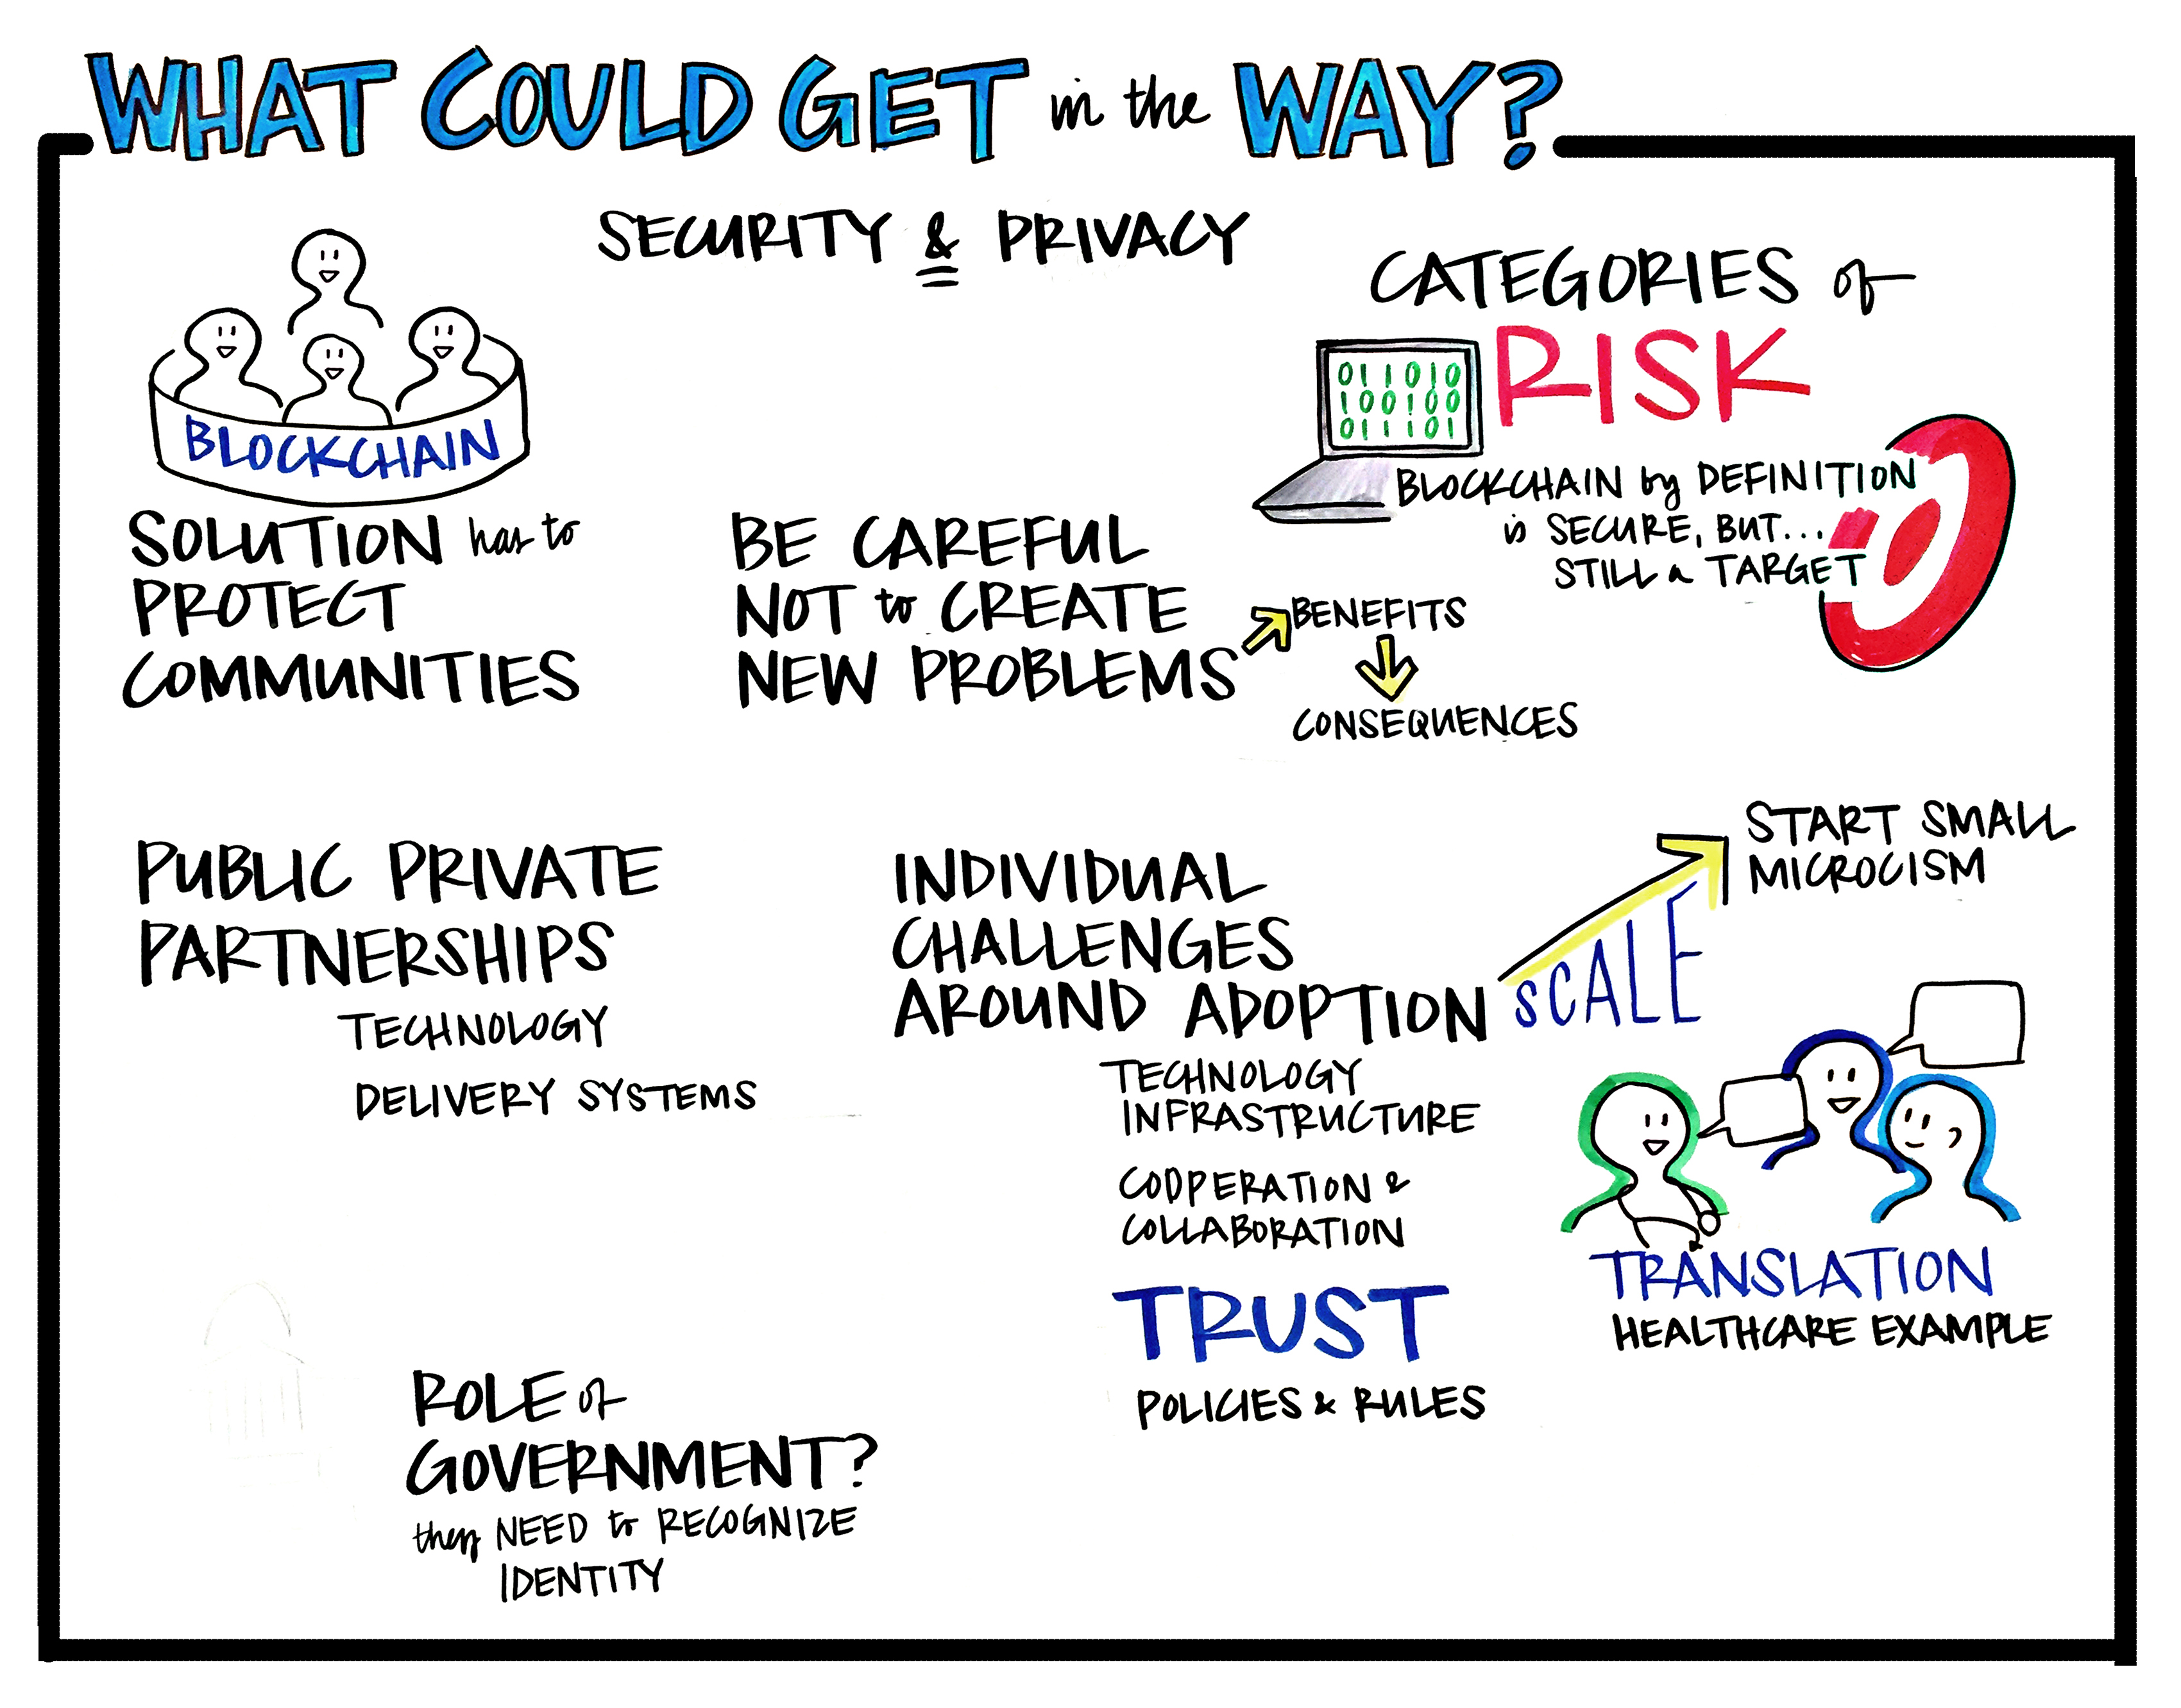 WHAT COULD GET in the WAY?
SECURITY & PRIVACY
BLOCKCHAIN
SOLUTION has to
PROTECT
COMMUNITIES
BE CAREFUL
NOT to CREATE
NEW PROBLEMS
BENEFITS
CONSEQUENCES
CATEGORIES of
RISK
011010
100100
011101
BLOCKCHAIN by DEFINITION
is SECURE, BUT...
STILL a TARGET
PUBLIC PRIVATE
PARTNERSHIPS
TECHNOLOGY
DELIVERY SYSTEMS
INDIVIDUAL
CHALLENGES
AROUND ADOPTION
SCALE
START SMALL
MICROCISM
TECHNOLOGY
INFRASTRUCTURE
COOPERATION &
COLLABORATION
TRUST
POLICIES & RULES
TRANSLATION
HEALTHCARE EXAMPLE
ROLE of
GOVERNMENT?
they NEED to RECOGNIZE
IDENTITY